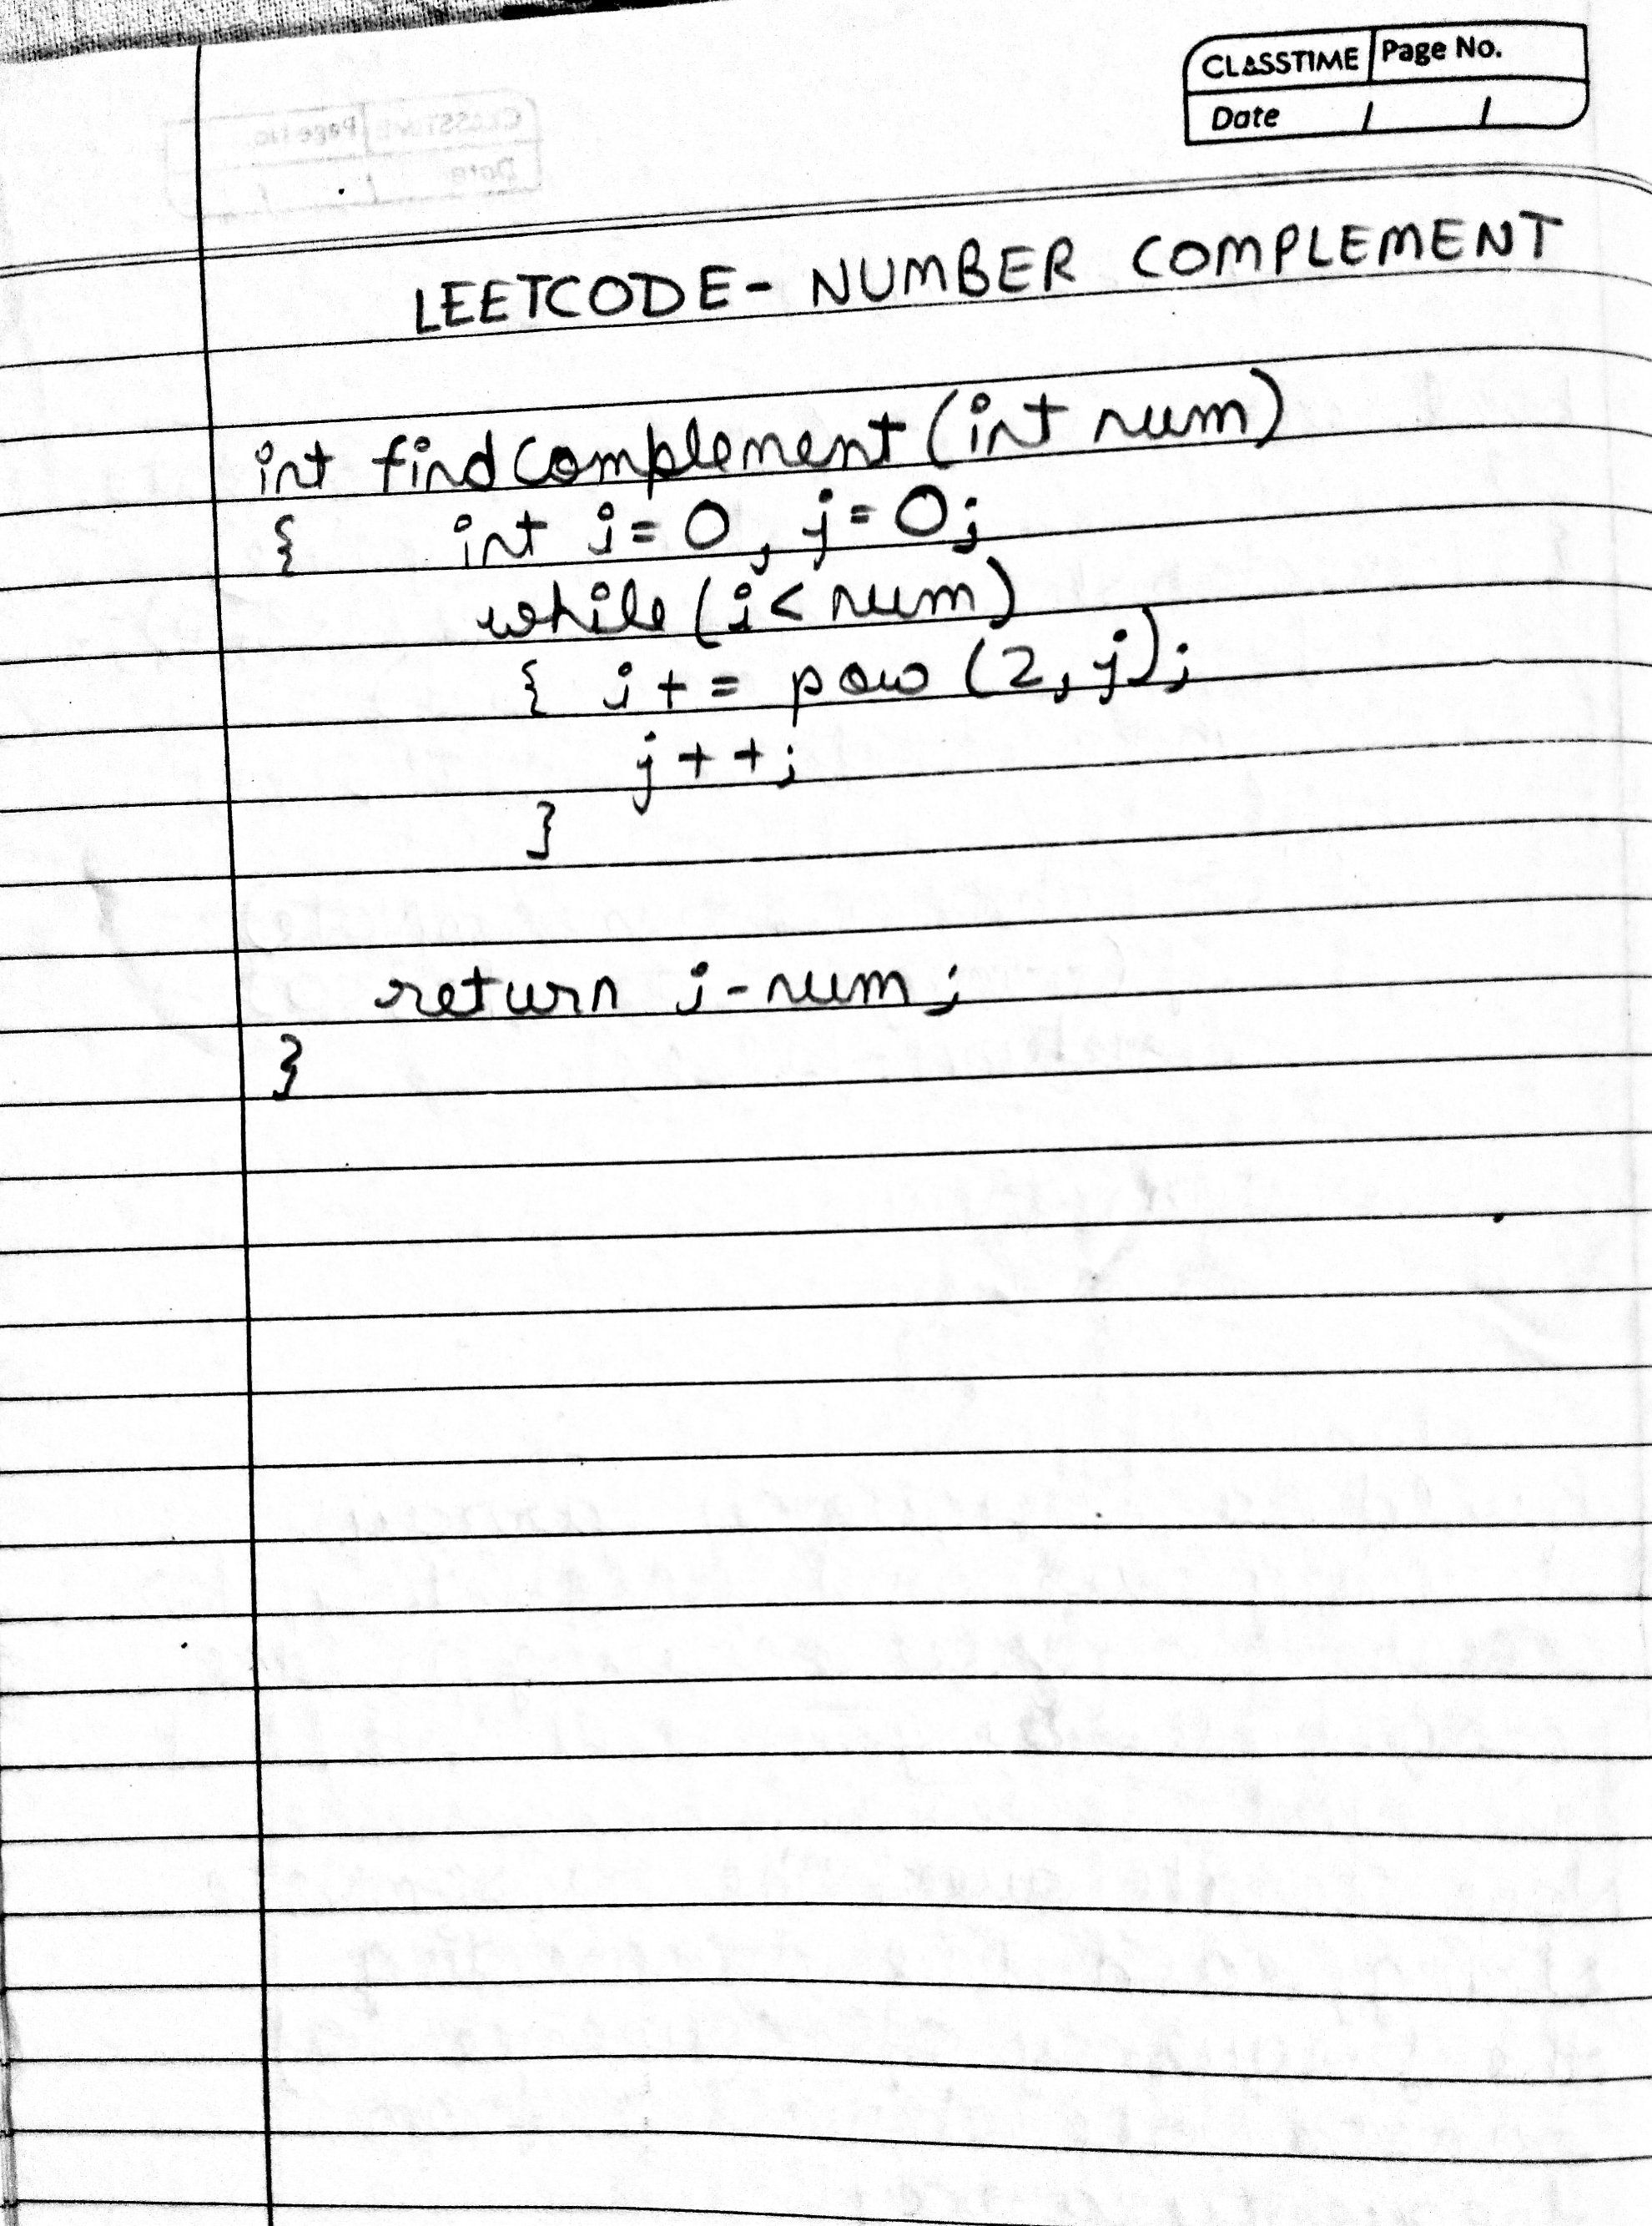 CLASSTIME Page No.
Date / /
LEETCODE- NUMBER COMPLEMENT
int findComplement (int num)
{ int i=0, j=0;
while (i< num)
{ i+= pow (2, j);
j++;
}
return i-num;
}